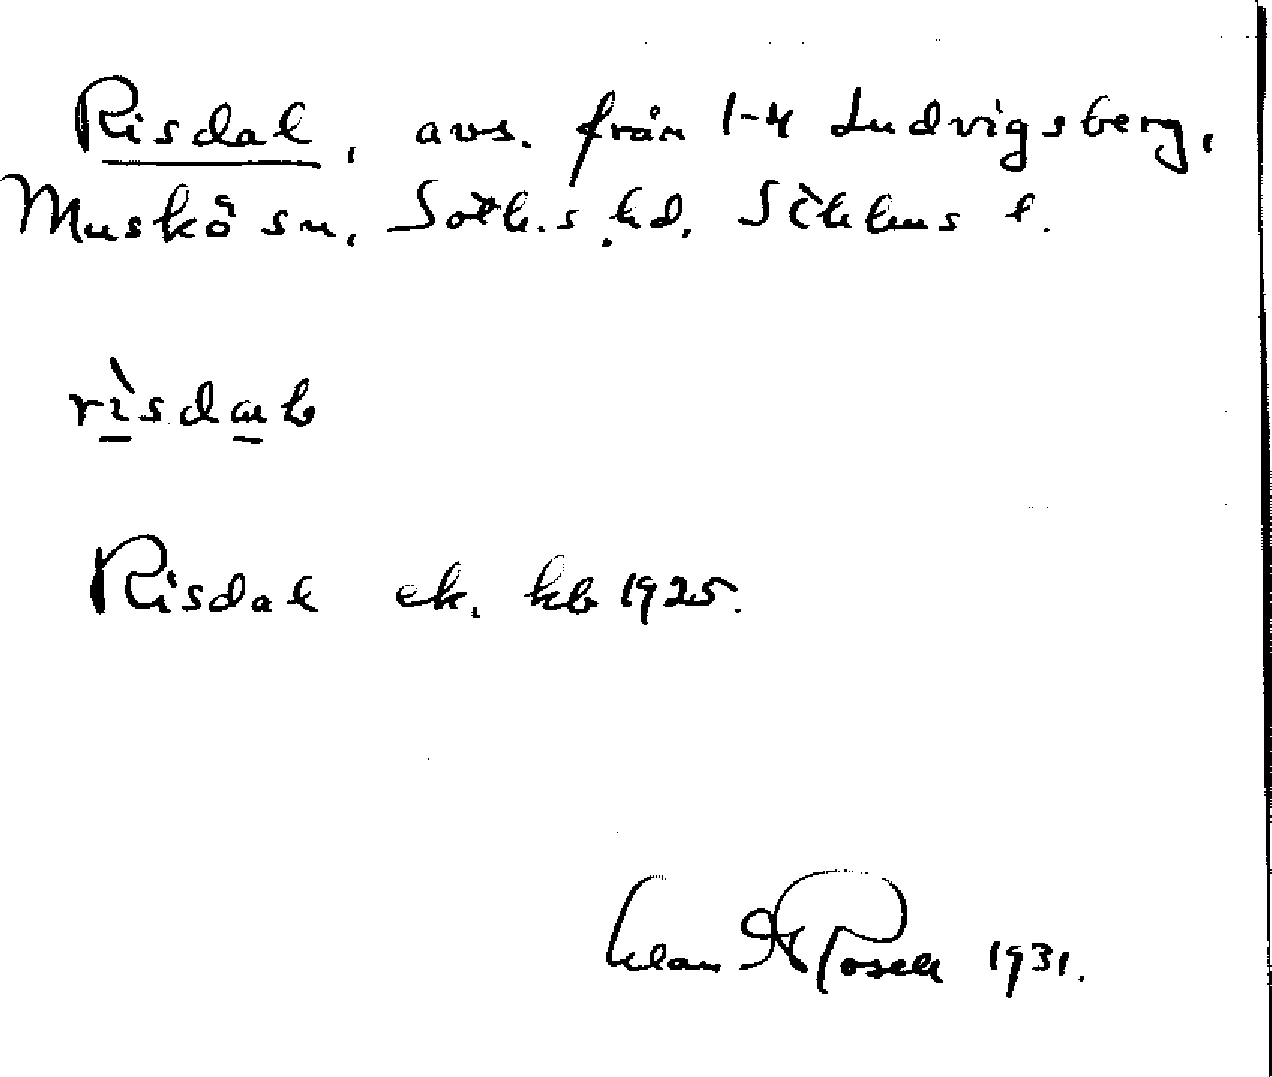 Risdal, avs. från 1-4 Ludvigsberg,
Muskö sn, Soth.s hd. Sthlms l.
rìsdal
Risdal ek. kb 1925.
1931.